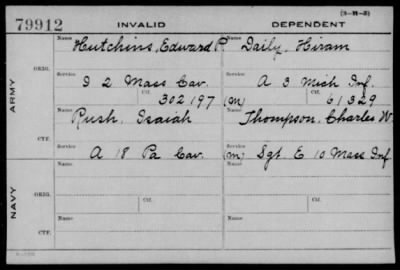 (3-11-3)
79912 INVALID DEPENDENT
Name Name
Hutchins, Edward P. Daily, Hiram
ORIG.
Service Service
I 2 Mass Cav. A 3 Mich Inf.
Ctf. Ctf.
302197 (m) 61329
ARMY
Name Name
Rush, Isaiah Thompson, Charles W
CTF.
Service Service
A 18 Pa Cav. (m) Sgt. E 10 Mass Inf
Name Ctf. Name Ctf.
ORIG.
NAVY
Name Name
CTF.